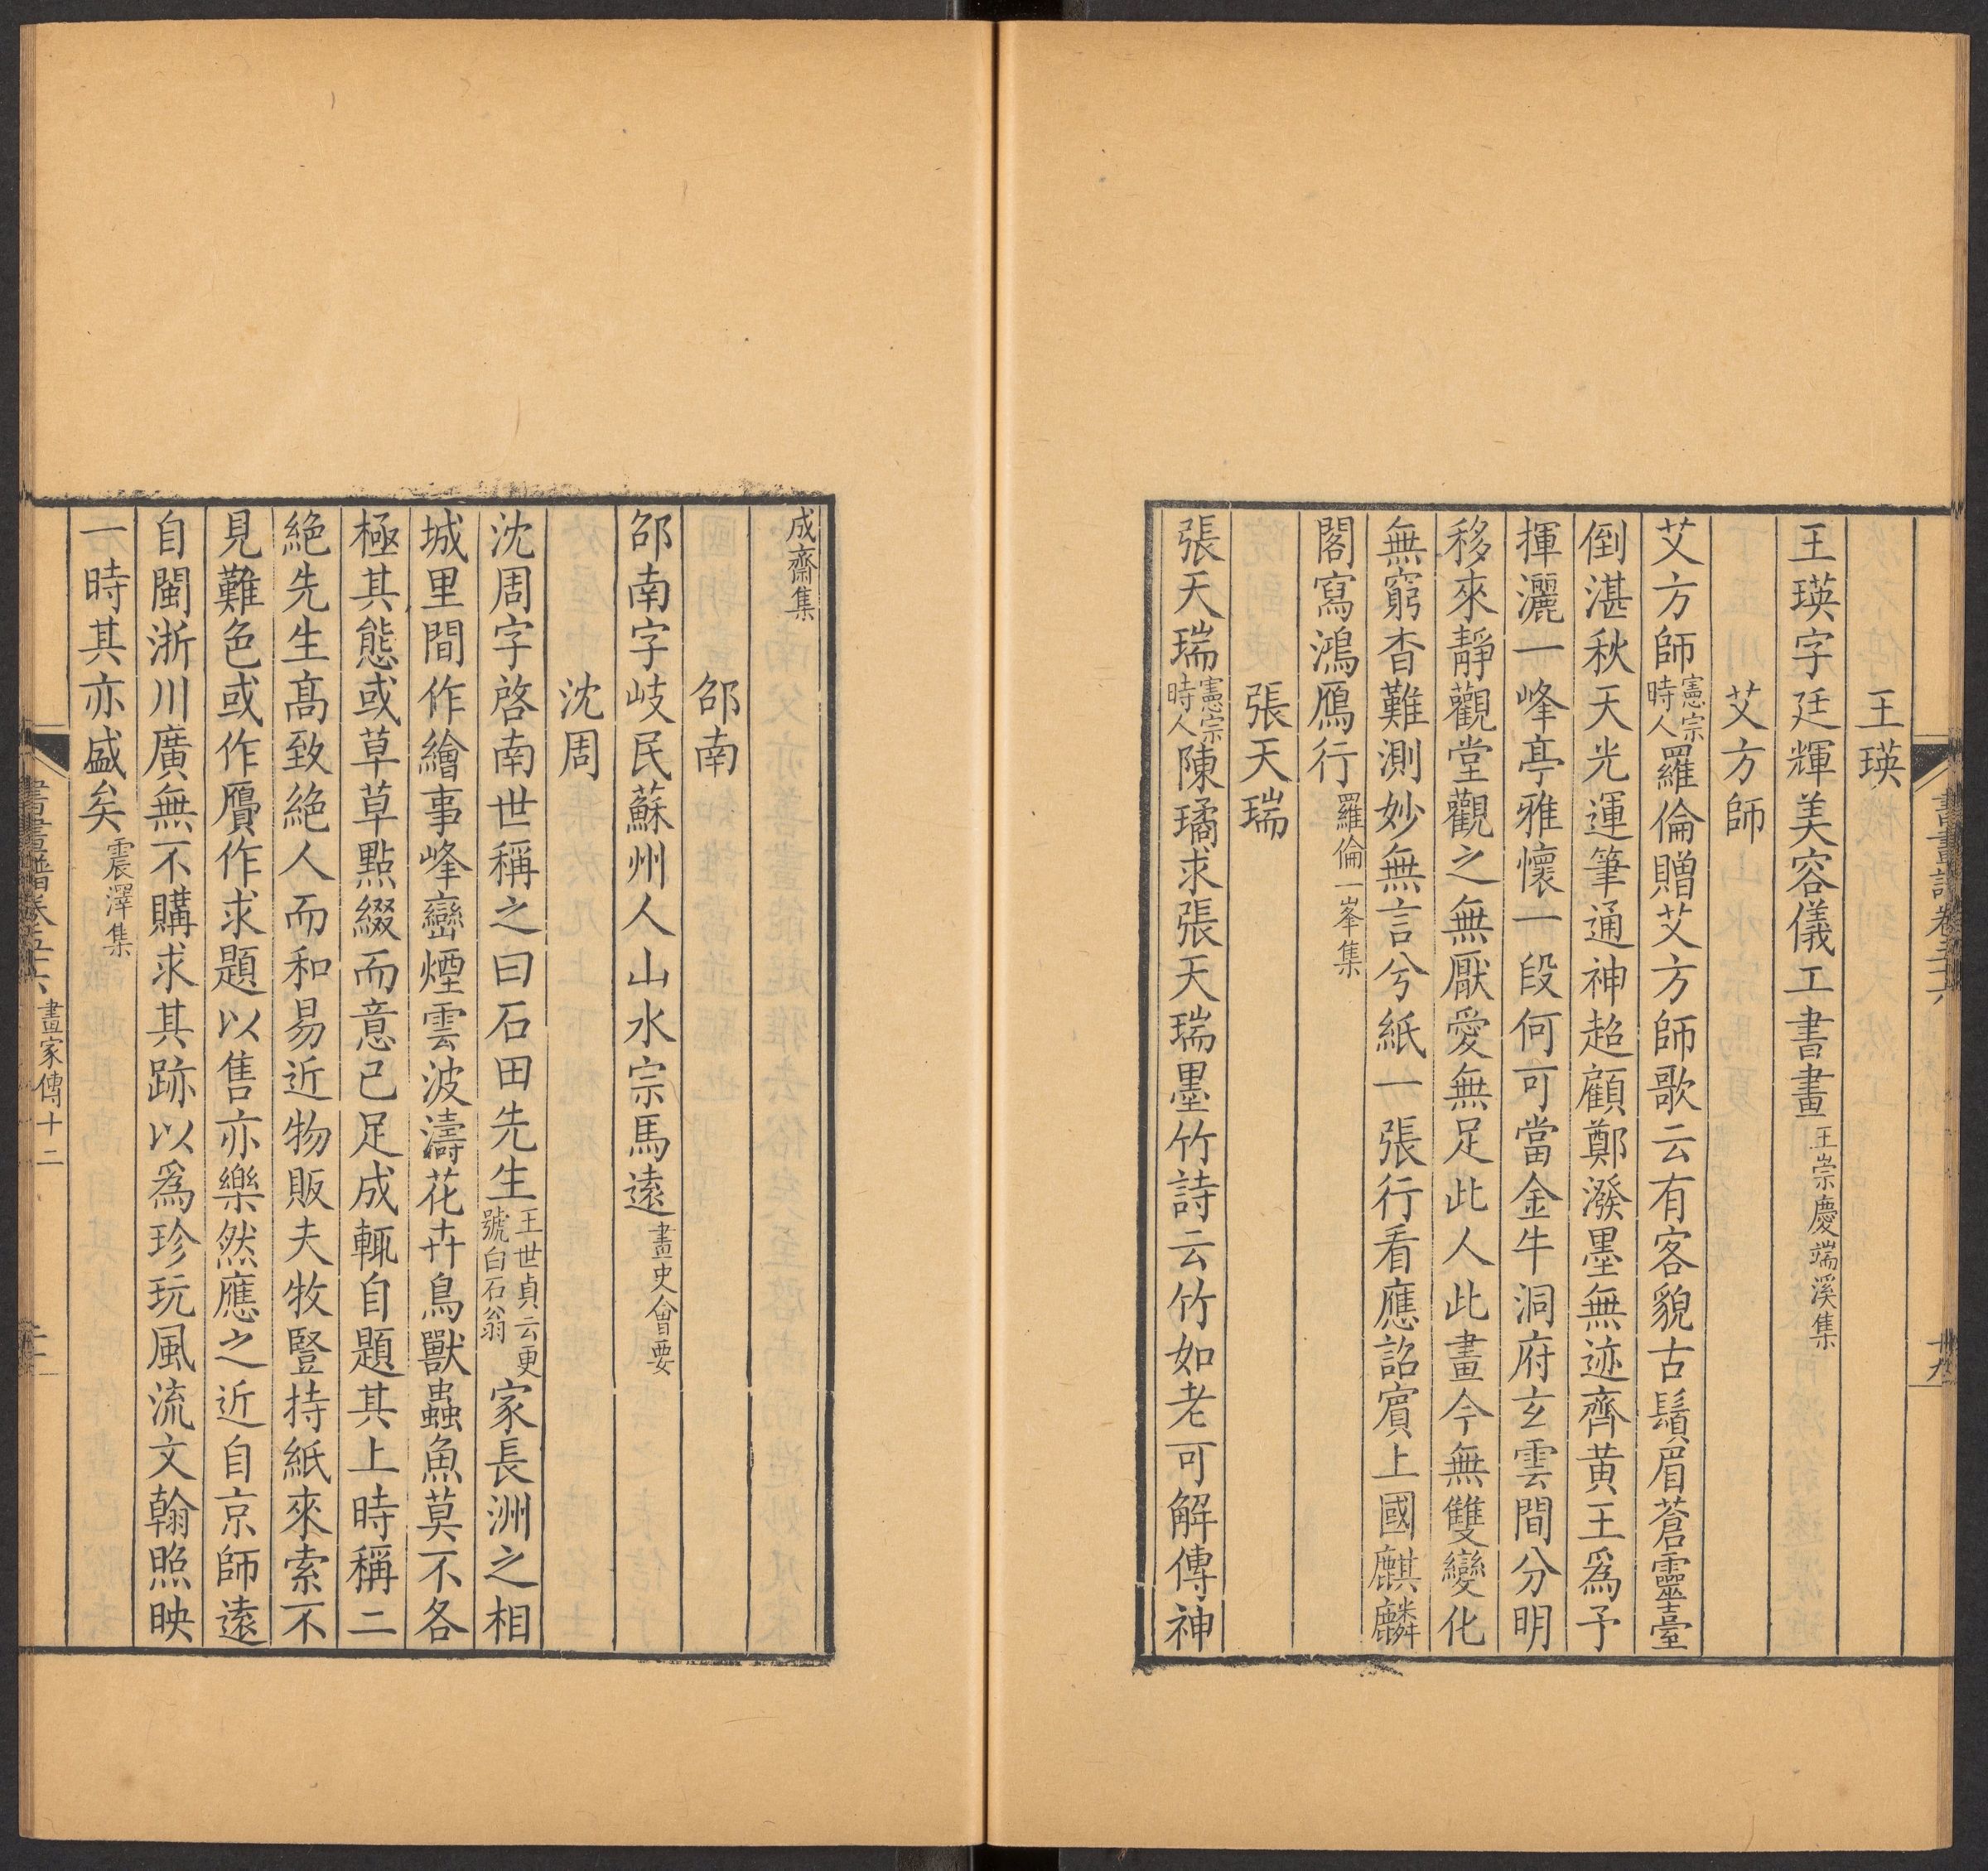 王瑛
王瑛字廷輝美容儀工書畫王崇慶端溪集
艾方師
艾方師憲宗時人羅倫贈艾方師歌云有客貌古鬚眉蒼靈臺
倒湛秋天光運筆通神超顧鄭潑墨無迹齊黄王爲予
揮灑一峰亭雅懷一段何可當金牛洞府玄雲間分明
移來靜觀堂觀之無厭愛無足此人此畫今無雙變化
無窮杳難測妙無言兮紙一張行看應詔賓上國麒麟
閣寫鴻鴈行羅倫一峯集
張天瑞
張天瑞憲宗時人陳璚求張天瑞墨竹詩云竹如老可解傳神
成齋集
邵南
邵南字岐民蘇州人山水宗馬遠畫史會要
沈周
沈周字啓南世稱之曰石田先生王世貞云更號白石翁家長洲之相
城里間作繪事峰巒煙雲波濤花卉鳥獸蟲魚莫不各
極其態或草草點綴而意已足成輒自題其上時稱二
絶先生髙致絶人而和易近物販夫牧豎持紙來索不
見難色或作贋作求題以售亦樂然應之近自京師遠
自閩浙川廣無不購求其跡以爲珍玩風流文翰照映
一時其亦盛矣震澤集
書畫譜卷五十六 畫家傳十二